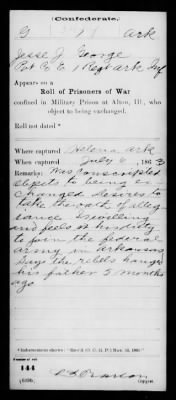 (Confederate.)
G Ark
Jesse J. George
Pvt Co. E, 1 Regt Ark Inf
Appears on a
Roll of Prisoners of War
confined in Military Prison at Alton, Ill., who
object to being exchanged.
Roll not dated *
Where captured Helena Ark
When captured July 6, 1863
Remarks: Was conscripted
objects to being ex
changed desires to
take the oath of alleg
iance &
and feels it his duty
to join the federal
army in Arkansas
Says the rebels hanged
his father 5 months
ago
Number of roll:
144
(639b) Copyist.